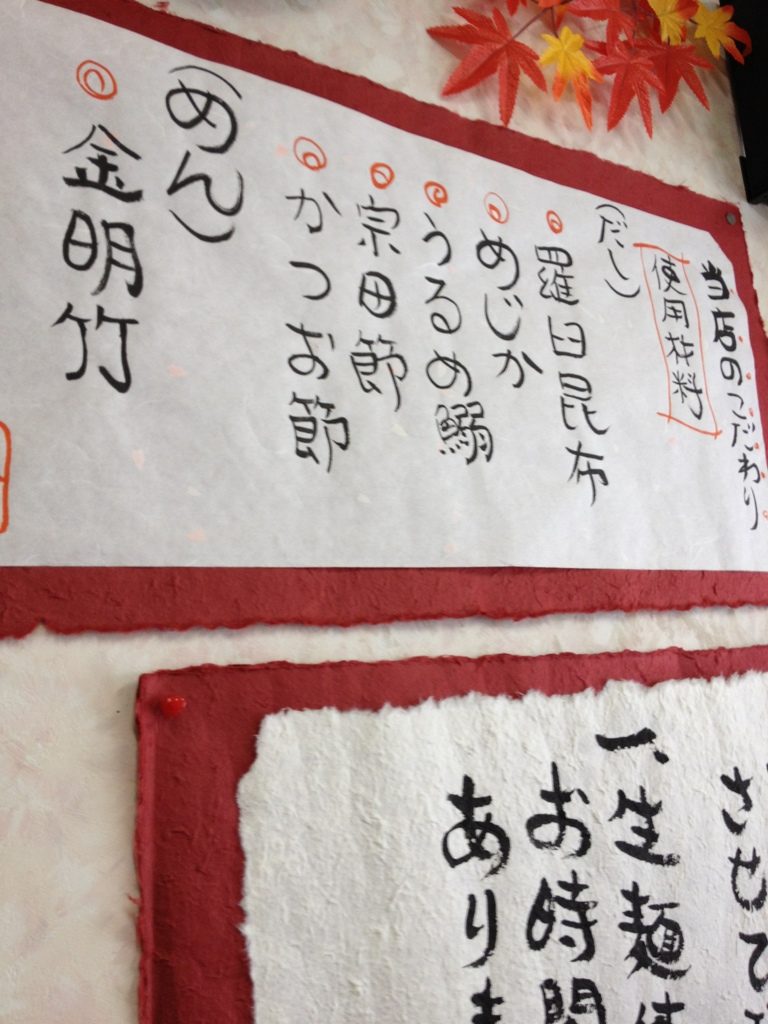 当店のこだわり
使用材料
(だし)
羅臼昆布
めじか
うるめ鰯
宗田節
かつお節
(めん)
金明竹
させ
一、生麺
お時間
あり